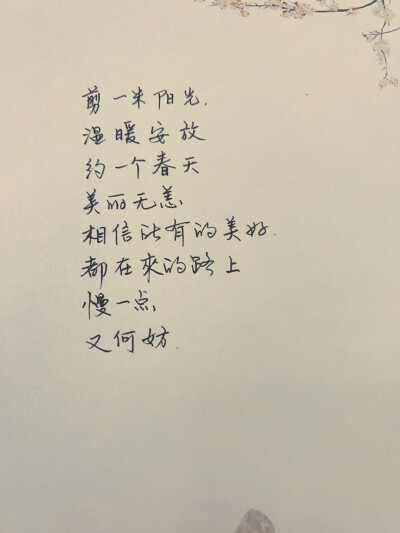 剪一米阳光.
温暖安放
约一个春天
美丽无恙
相信所有的美好.
都在來的路上
慢一点
又何妨.